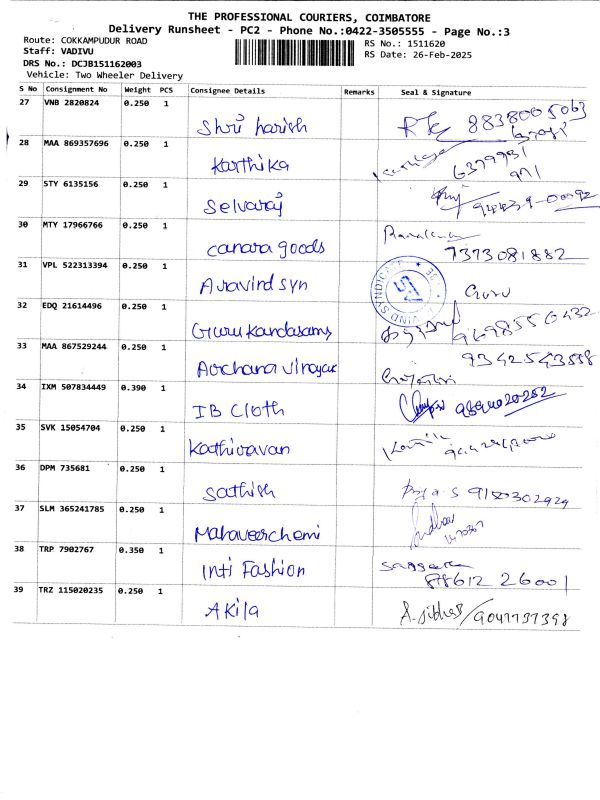 THE PROFESSIONAL COURIERS, COIMBATORE
Delivery Runsheet - PC2 - Phone No.:0422-3505555 - Page No.:3
Route: COKKAMPUDUR ROAD
RS No.: 1511620
Staff: VADIVU
RS Date: 26-Feb-2025
DRS No.: DCJB151162003
Vehicle: Two Wheeler Delivery
S No Consignment No Weight PCS Consignee Details Remarks Seal & Signature
27 VNB 2820824 0.250 1
Shri harish 8838005063
28 MAA 869357696 0.250 1
Karthika 6379931
971
29 STY 6135156 0.250 1
Selvaraj 94439-00092
30 MTY 17966766 0.250 1
canara goods 7373081882
31 VPL 522313394 0.250 1
Aravind syn Guru
32 EDQ 21614496 0.250 1
Guru Kandasamy 9698550432
33 MAA 867529244 0.250 1
Archana vinayak 9342543558
34 IXM 507834449 0.390 1
IB Cloth
35 SVK 15054704 0.250 1
Kathiravan
36 DPM 735681 0.250 1
Sathish 9150302929
37 SLM 365241785 0.250 1
Mahaveerchemi
38 TRP 7902767 0.350 1
Inti Fashion
88612 26001
39 TRZ 115020235 0.250 1
Akila 9047737398